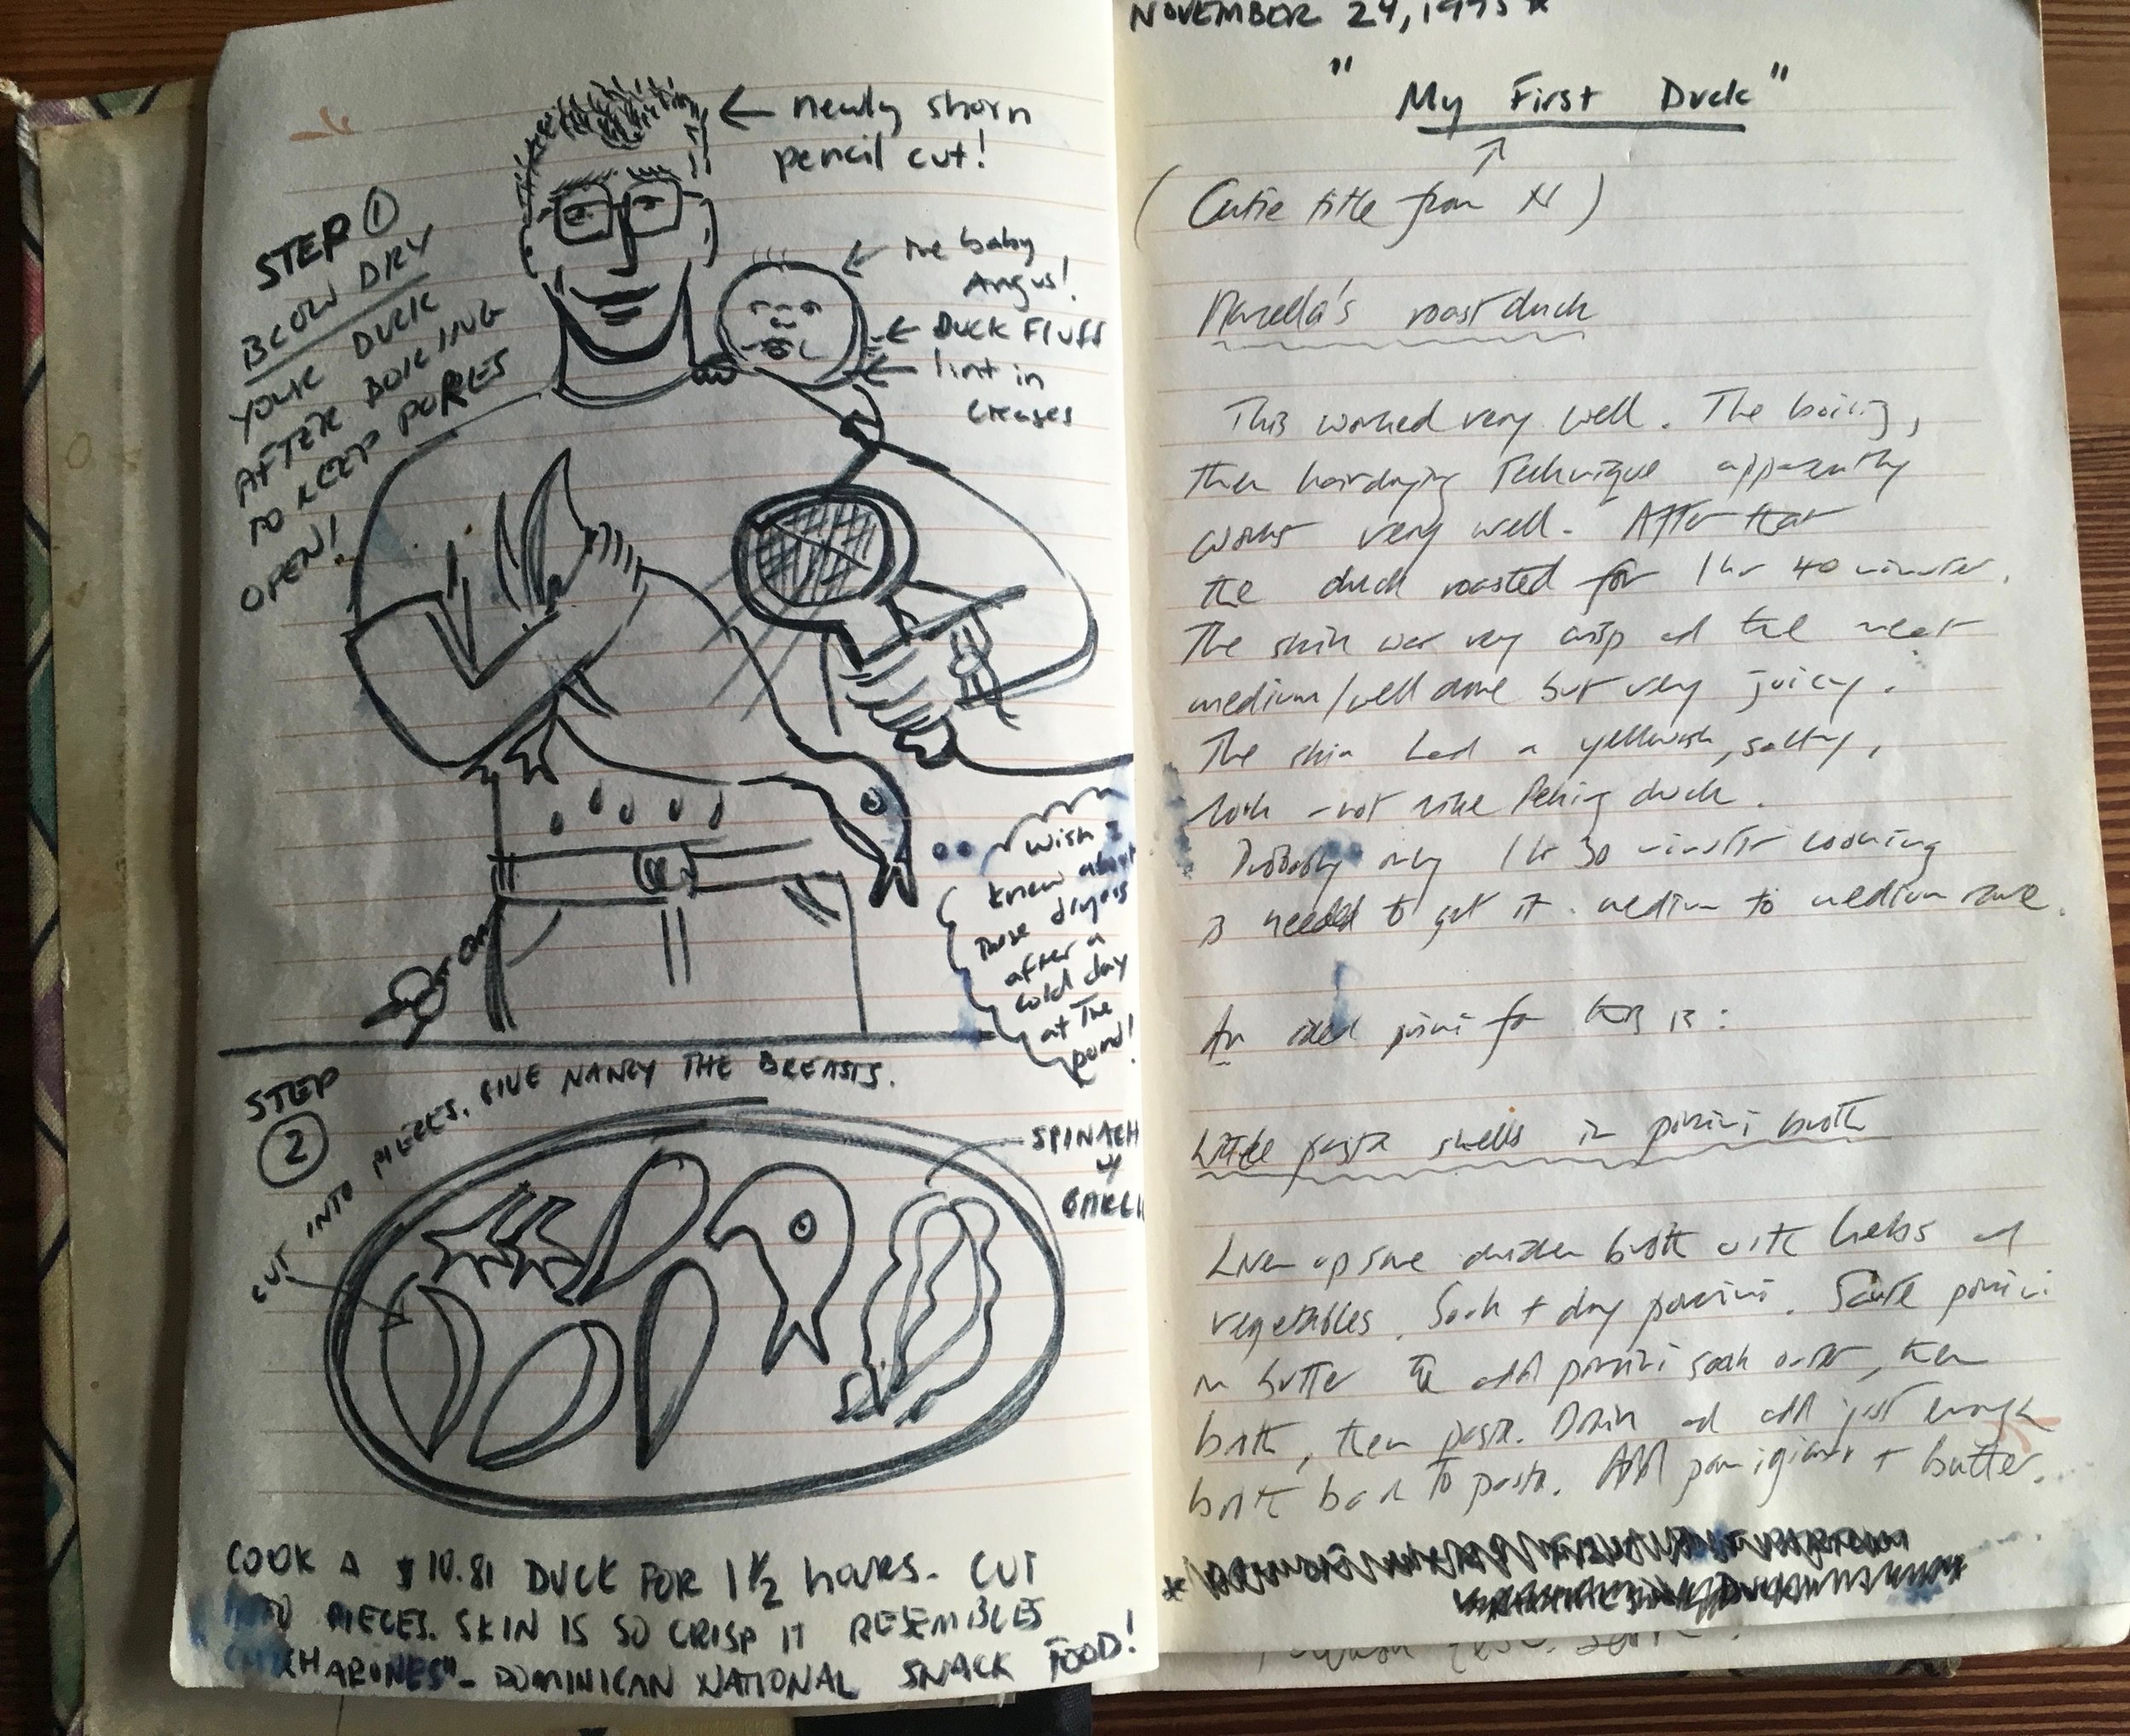 newly shorn
pencil cut!
STEP 1
BLOW DRY
YOUR DUCK
AFTER BOILING
TO KEEP PORES
OPEN!
The baby
Angus!
DUCK FLUFF
lint in
creases
wish I
knew about
These dryers
after a
cold day
at The
pond!
STEP
2
CUT INTO PIECES. GIVE NANCY THE BREASTS.
SPINACH
w/
GARLI
COOK A $10.81 DUCK FOR 1 1/2 hours. CUT
INTO PIECES. SKIN IS SO CRISP IT RESEMBLES
"CHICHARONES" - DOMINICAN NATIONAL SNACK FOOD!
NOVEMBER 24, 1995*
"My First Duck"
(Cutie title from N)
Marcella's roast duck
This worked very well. The boiling,
then hairdrying Technique apparently
works very well. After that
the duck roasted for 1 hr 40 minutes.
The skin was very crisp and the meat
medium/well done but very juicy.
The skin had a yellowish, salty,
look - not like Peking duck.
Probably only 1 hr 30 minutes cooking
is needed to get it medium to medium rare.
An ideal primi for this is:
Little pasta shells in porcini broth
Liven up some chicken broth with herbs and
vegetables. Soak + dry porcini. Saute porcini
in butter then add porcini soak water, then
broth, then pasta. Drain and add just enough
broth back to pasta. Add parmigiano + butter.
*